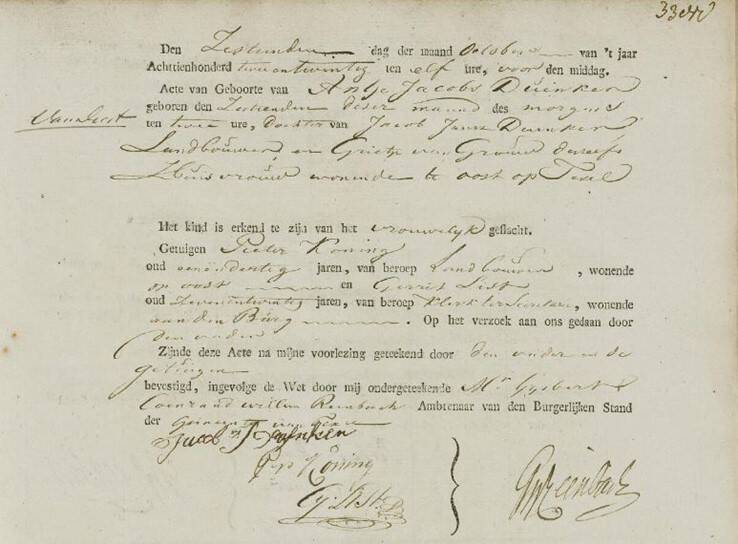 Den Zestienden dag der maand October van 't jaar
Achttienhonderd twee en twintig ten elf ure, voor den middag.
Acte van Geboorte van Antje Jacobs Duinker
geboren den Zestienden dezer maand des morgens
ten twee ure, dochter van Jacob Jansz Duinker
Landbouwer en Grietje van Grouw deszelfs
Huisvrouw wonende te oost op Texel
Het kind is erkend te zijn van het vrouwelijk geslacht.
Getuigen Pieter Koning
oud eenendertig jaren, van beroep Landbouwer, wonende
op oost en Gerrit List
oud Zevenentwintig jaren, van beroep Klerk ter Secretarie, wonende
aan den Burg. Op het verzoek aan ons gedaan door
den vader
Zijnde deze Acte na mijne voorlezing geteekend door den vader en de
getuigen
bevestigd, ingevolge de Wet door mij ondergeteekende Mr Gijsbert
Coenraad Willem Reinbach Ambtenaar van den Burgerlijken Stand
der Gemeente van Texel
Jacob J Duinker
Koning
G: List
GReinbach